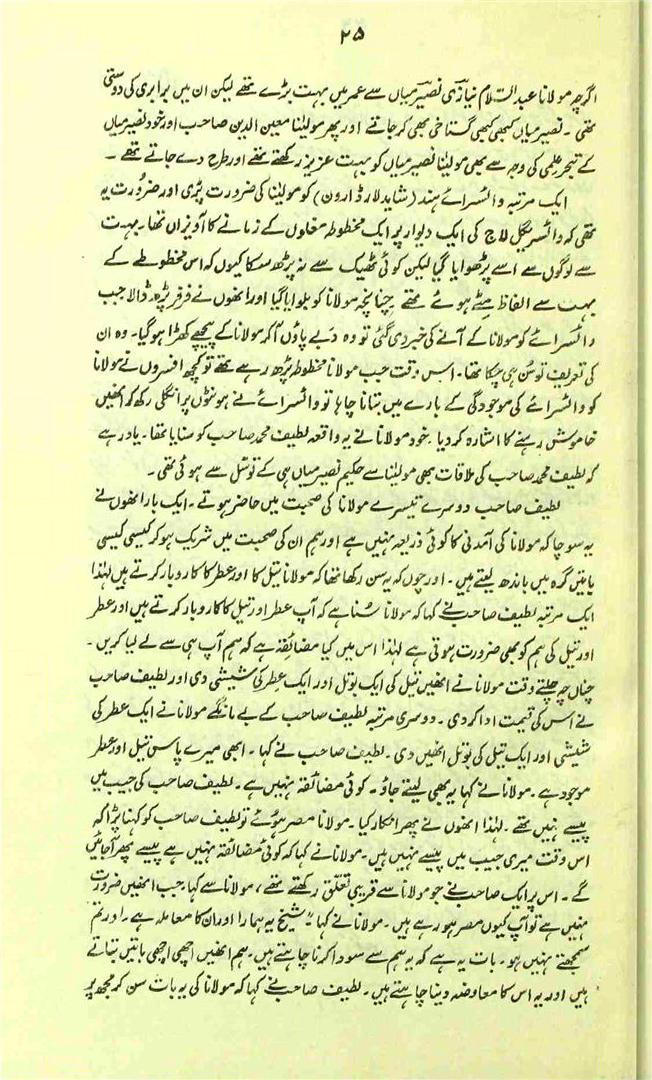 ۲۵
اگرچہ مولانا عبدالسلام نیازی نصیر میاں سے عمر میں بہت بڑے تھے لیکن ان میں برابری کی دوستی
تھی ۔ نصیر میاں کبھی کبھی گستاخی بھی کر جاتے اور پھر مولینا معین الدین صاحب اور خود نصیر میاں
کے تبحر علمی کی وجہ سے بھی مولینا نصیر میاں کو بہت عزیز رکھتے تھے اور طرح دے جاتے تھے ۔
ایک مرتبہ وائسرائے ہند (شاید لارڈ ارون) کو مولینا کی ضرورت پڑی اور ضرورت یہ
تھی کہ وائسریگل لاج کی ایک دیوار پر ایک مخطوطہ مغلوں کے زمانے کا آویزاں تھا۔ بہت
سے لوگوں سے اسے پڑھوایا گیا لیکن کوئی ٹھیک سے نہ پڑھ سکا کیوں کہ اس مخطوطے کے
بہت سے الفاظ مٹے ہوئے تھے چنانچہ مولانا کو بلوایا گیا اور انھوں نے فرفر پڑھ ڈالا جب
وائسرائے کو مولانا کے آنے کی خبر دی گئی تو وہ دبے پاؤں آکر مولانا کے پیچھے کھڑا ہوگیا۔ وہ ان
کی تعریف تو سن ہی چکا تھا۔ اس وقت جب مولانا مخطوطہ پڑھ رہے تھے تو کچھ افسروں نے مولانا
کو وائسرائے کی موجودگی کے بارے میں بتانا چاہا تو وائسرائے نے ہونٹوں پر انگلی رکھ کر انھیں
خاموش رہنے کا اشارہ کر دیا ۔ خود مولانا نے یہ واقعہ لطیف محمد صاحب کو سنایا تھا۔ یاد رہے
کہ لطیف محمد صاحب کی ملاقات بھی مولینا سے حکیم نصیر میاں ہی کے توسل سے ہوئی تھی ۔
لطیف صاحب دوسرے تیسرے مولانا کی صحبت میں حاضر ہوتے ۔ ایک بار انھوں نے
یہ سوچا کہ مولانا کی آمدنی کا کوئی ذریعہ نہیں ہے اور ہم ان کی صحبت میں شریک ہو کر کیسی کیسی
باتیں گرہ میں باندھ لیتے ہیں ۔ اور چوں کہ یہ سن رکھا تھا کہ مولانا تیل کا اور عطر کا کاروبار کرتے ہیں لہٰذا
ایک مرتبہ لطیف صاحب نے کہا کہ مولانا سنا ہے کہ آپ عطر اور تیل کا کاروبار کرتے ہیں اور عطر
اور تیل کی ہم کو بھی ضرورت ہوتی ہے لہٰذا اس میں کیا مضائقہ ہے کہ ہم آپ ہی سے لے لیا کریں ۔
چناں چہ چلتے وقت مولانا نے انھیں تیل کی ایک بوتل اور ایک عطر کی شیشی دی اور لطیف صاحب
نے اس کی قیمت ادا کردی ۔ دوسری مرتبہ لطیف صاحب کے بے مانگے مولانا نے ایک عطر کی
شیشی اور ایک تیل کی بوتل انھیں دی ۔ لطیف صاحب نے کہا ۔ ابھی میرے پاس تیل اور عطر
موجود ہے ۔ مولانا نے کہا یہ بھی لیتے جاؤ ۔ کوئی مضائقہ نہیں ہے ۔ لطیف صاحب کی جیب میں
پیسے نہیں تھے ۔ لہٰذا انھوں نے پھر انکار کیا ۔ مولانا مصر ہوئے تو لطیف صاحب کو کہنا پڑا کہ
اس وقت میری جیب میں پیسے نہیں ہیں ۔ مولانا نے کہا کہ کوئی مضائقہ نہیں ہے پیسے پھر آجائیں
گے ۔ اس پر ایک صاحب نے جو مولانا سے قریبی تعلق رکھتے تھے، مولانا سے کہا ۔ جب انھیں ضرورت
نہیں ہے تو آپ کیوں مصر ہو رہے ہیں ۔ مولانا نے کہا "شیخ یہ ہمارا اور ان کا معاملہ ہے اور تم
سمجھتے نہیں ہو ۔ بات یہ ہے کہ یہ ہم سے سودا کرنا چاہتے ہیں ۔ ہم انھیں اچھی اچھی باتیں بتاتے
ہیں اور یہ اس کا معاوضہ دینا چاہتے ہیں ۔ لطیف صاحب نے کہا کہ مولانا کی یہ بات سن کر مجھ پر